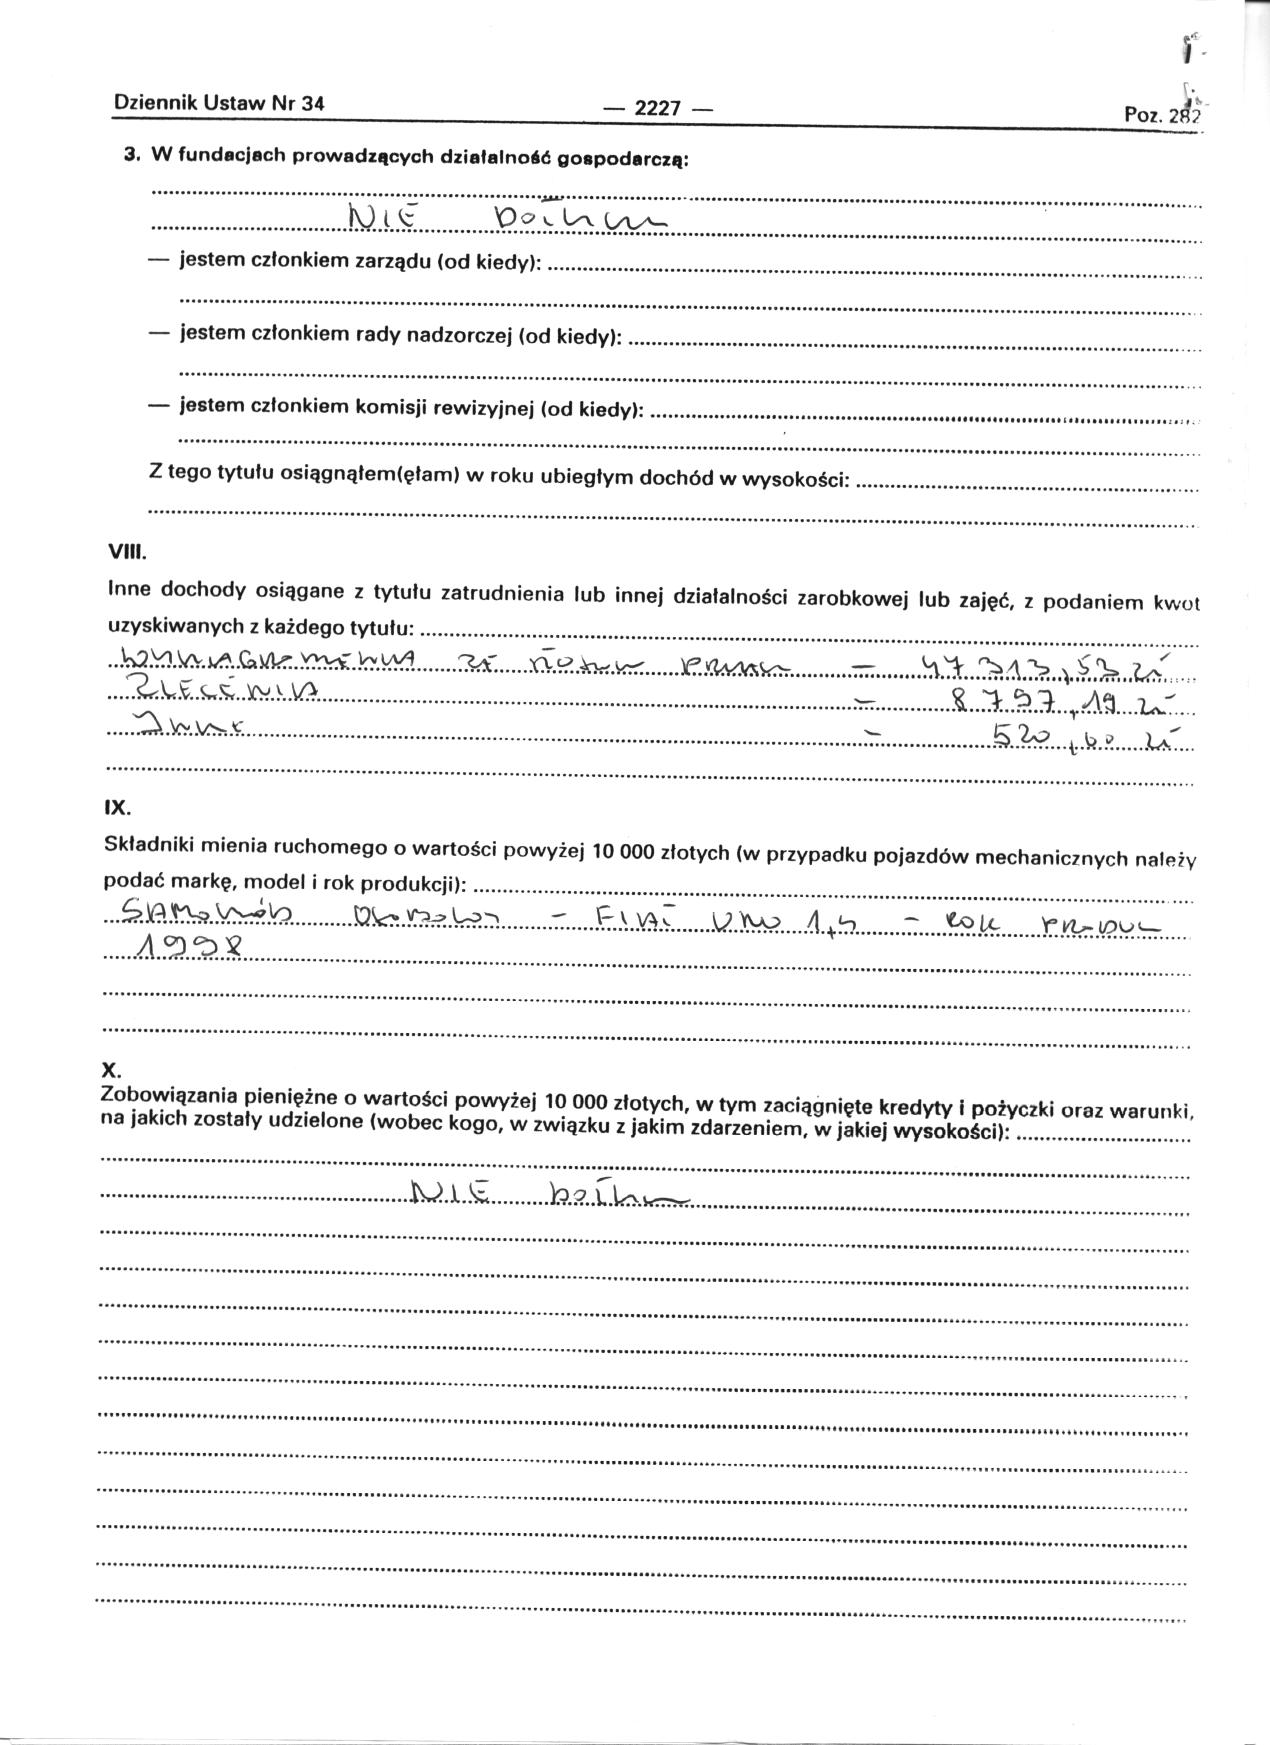 Dziennik Ustaw Nr 34 — 2227 — Poz. 282
3. W fundacjach prowadzących działalność gospodarczą:
NIE DOTYCZY
— jestem członkiem zarządu (od kiedy):
— jestem członkiem rady nadzorczej (od kiedy):
— jestem członkiem komisji rewizyjnej (od kiedy):
Z tego tytułu osiągnąłem(ęłam) w roku ubiegłym dochód w wysokości:
VIII.
Inne dochody osiągane z tytułu zatrudnienia lub innej działalności zarobkowej lub zajęć, z podaniem kwot
uzyskiwanych z każdego tytułu:
ZE = 47 313,53 zł
ZLECENIA = 8 797,19 zł
INNE = 520,60 zł
IX.
Składniki mienia ruchomego o wartości powyżej 10 000 złotych (w przypadku pojazdów mechanicznych należy
podać markę, model i rok produkcji):
SAMOCHÓD OSOBOWY – FIAT UNO 1,4 – ROK PRODUK
1998
X.
Zobowiązania pieniężne o wartości powyżej 10 000 złotych, w tym zaciągnięte kredyty i pożyczki oraz warunki,
na jakich zostały udzielone (wobec kogo, w związku z jakim zdarzeniem, w jakiej wysokości):
NIE DOTYCZY